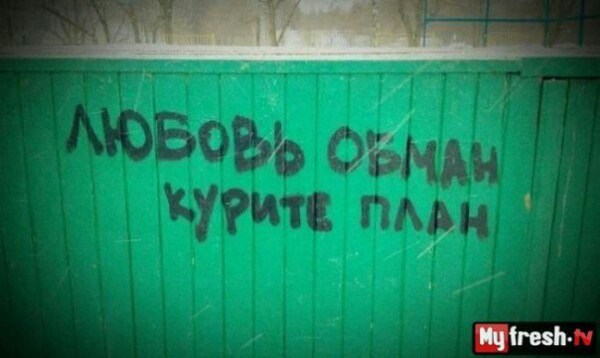 ЛЮБОВЬ ОБМАН
КУРИТЕ ПЛАН
Myfresh.tv